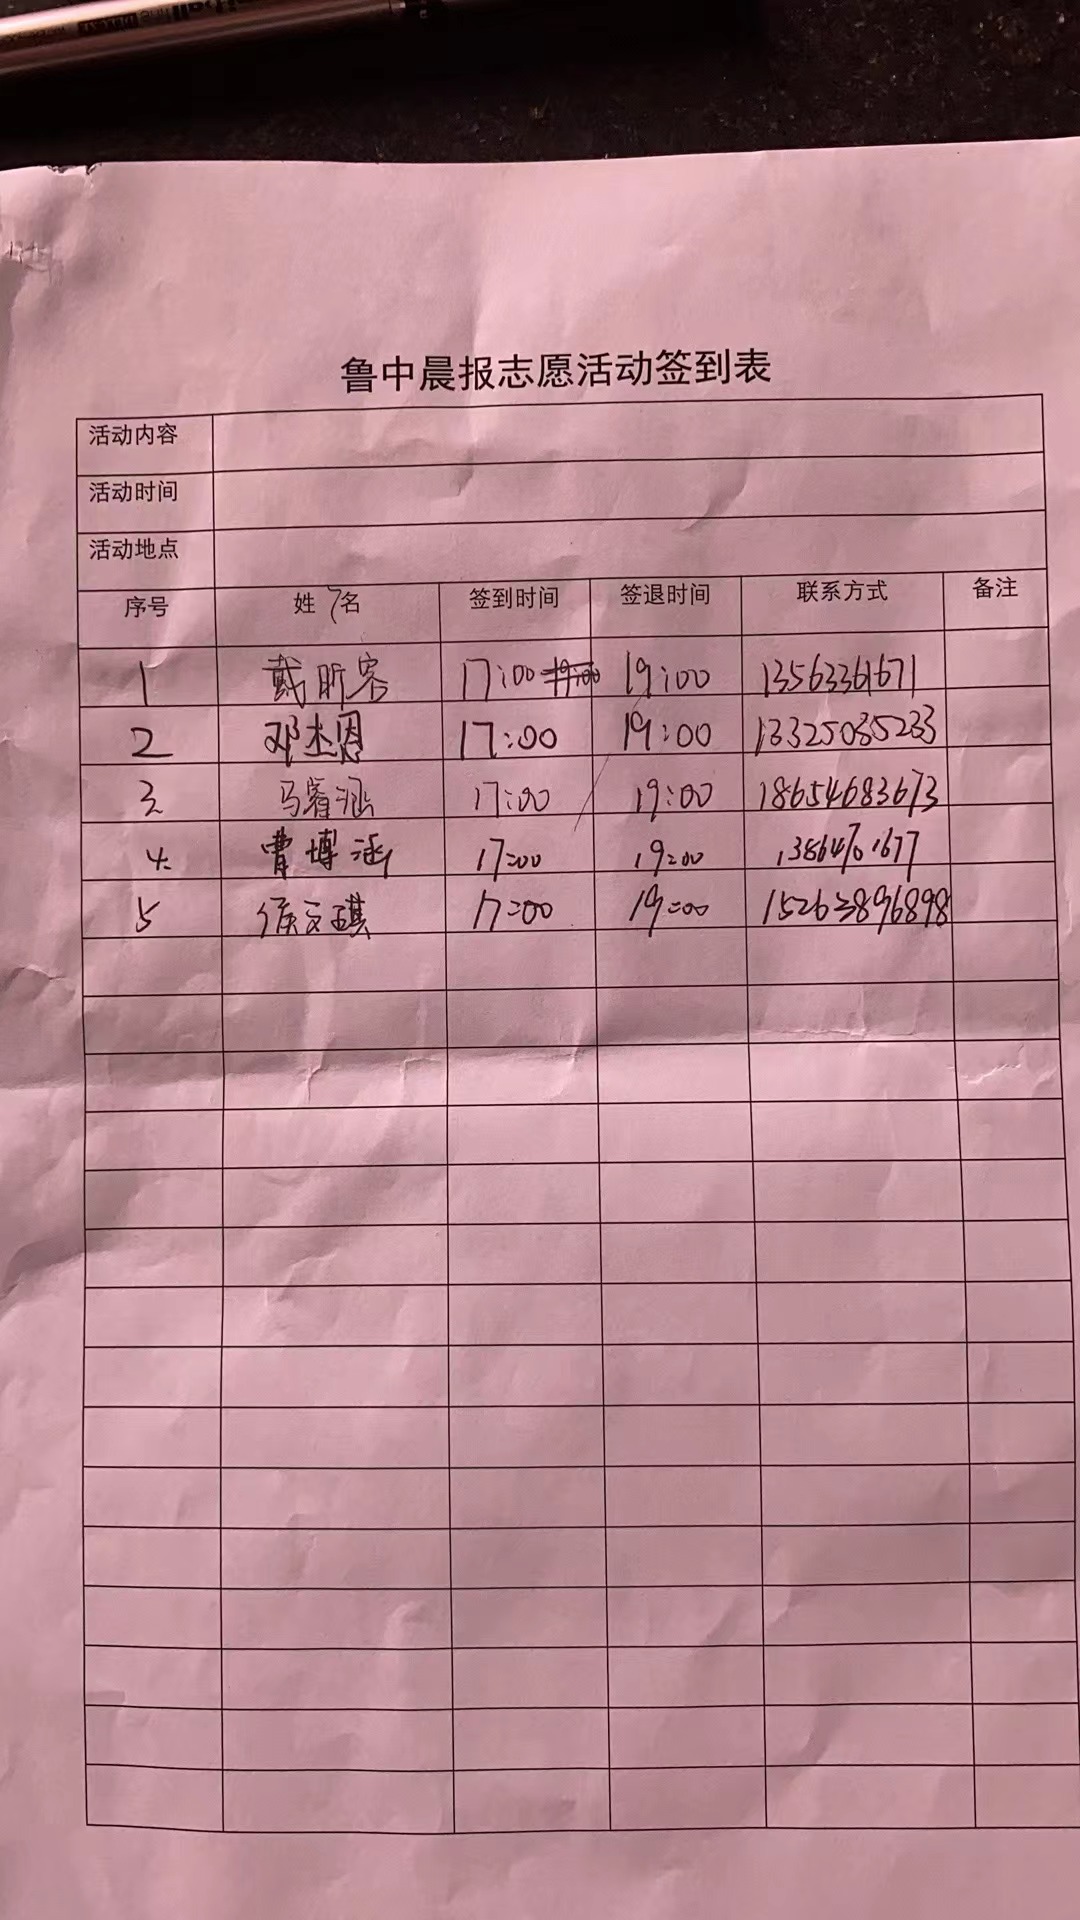 鲁中晨报志愿活动签到表
活动内容
活动时间
活动地点
序号 姓名 签到时间 签退时间 联系方式 备注
1 戴昕容 17:00 19:00 19:00 13563361671
2 邓杰恩 17:00 19:00 13325035233
3 马睿涵 17:00 19:00 18654683673
4 曹博涵 17:00 19:00 13864701677
5 侯文琪 17:00 19:00 15263896898